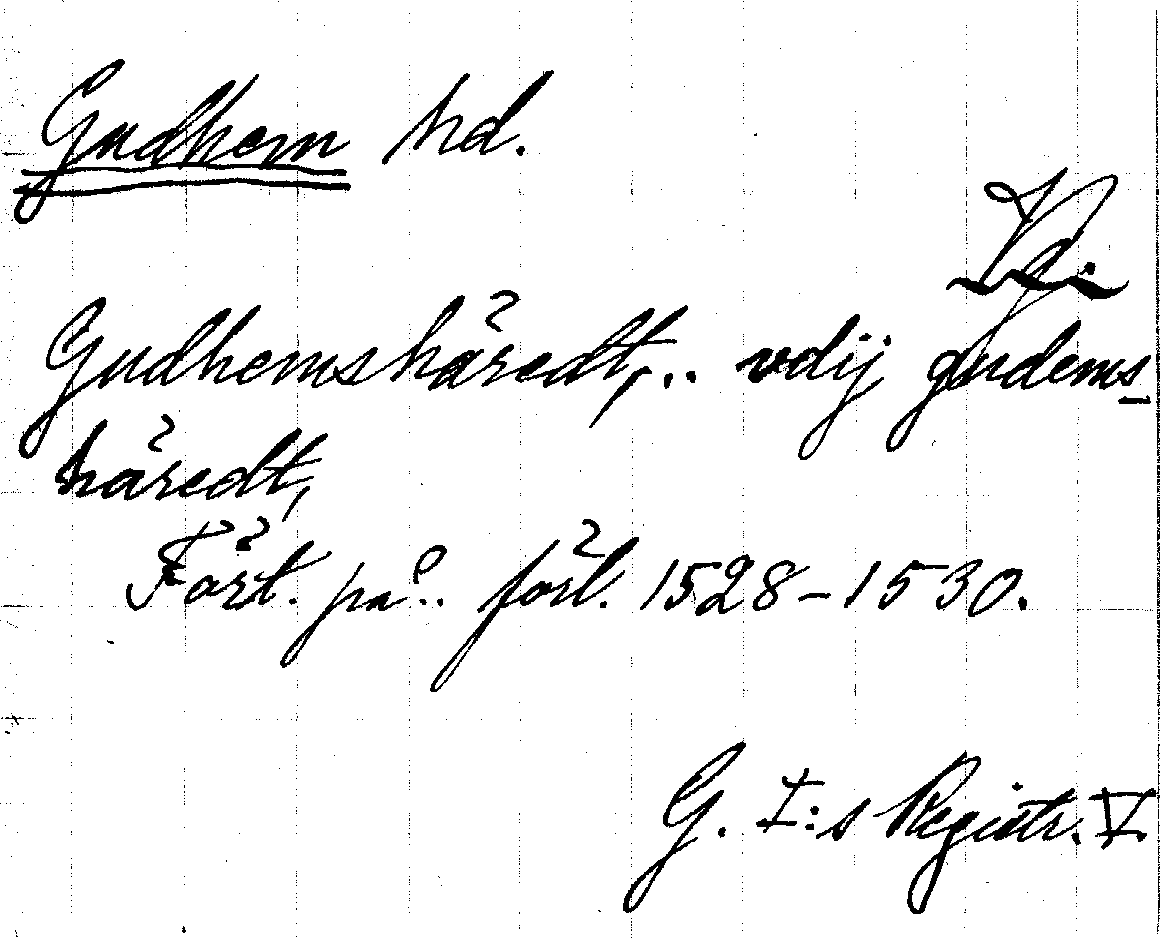 Gudhem hd.
Vg.
Gudhemshäredt,.. vdij gudems
häredt,
Fört. på.. förl. 1528-1530.
G. I:s Registr. V.